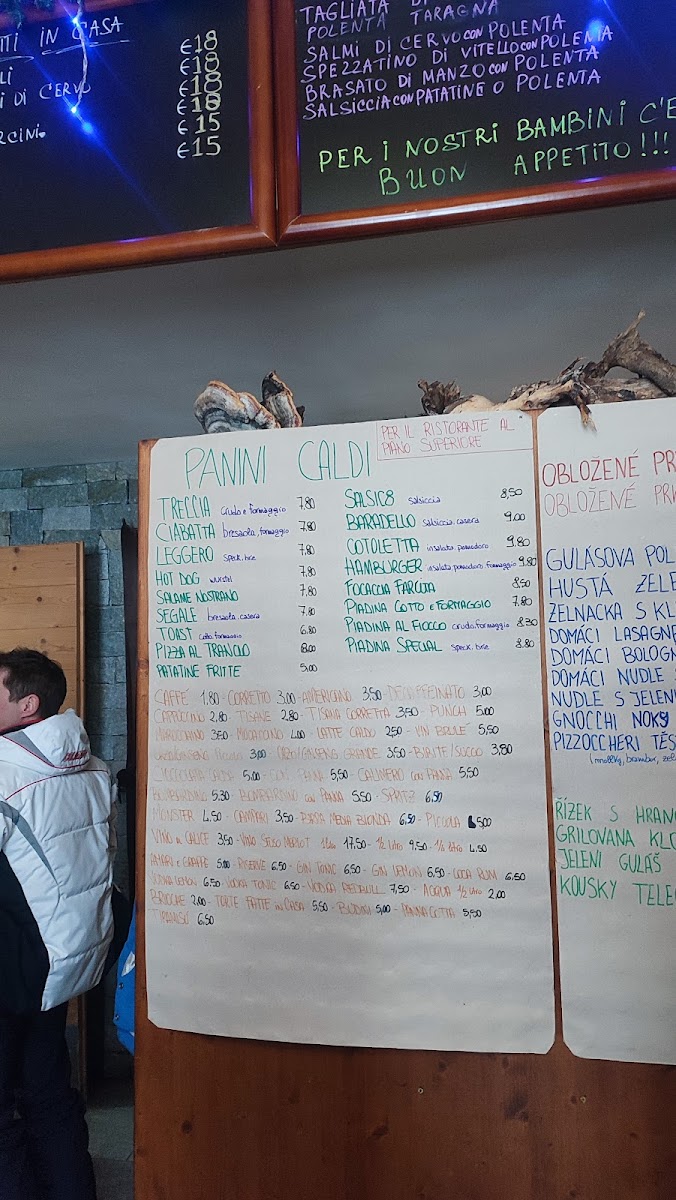 TTI IN CASA
€18
€18
LI €18
I DI CERVO €18
€15
RCINI. €15
TAGLIATA DI
POLENTA TARAGNA
SALMI DI CERVO CON POLENTA
SPEZZATINO DI VITELLO CON POLENTA
BRASATO DI MANZO CON POLENTA
SALSICCIA CON PATATINE O POLENTA
PER I NOSTRI BAMBINI C'E
BUON APPETITO!!!
PANINI CALDI
PER IL RISTORANTE AL
PIANO SUPERIORE
TRECCIA crudo e formaggio 7,80
CIABATTA bresaola, formaggio 7,80
LEGGERO speck, brie 7,80
HOT DOG wurstel 7,80
SALAME NOSTRANO 7,80
SEGALE bresaola, casera 7,80
TOAST cotto, formaggio 6,80
PIZZA AL TRANCIO 8,00
PATATINE FRITTE 5,00
SALSIC8 salsiccia 8,50
BARADELLO salsiccia, casera 9,00
COTOLETTA insalata, pomodoro 9,80
HAMBURGER insalata, pomodoro, formaggio 9,80
FOCACCIA FARCITA 8,50
PIADINA COTTO E FORMAGGIO 7,80
PIADINA AL FIOCCO crudo, formaggio 8,30
PIADINA SPECIAL speck, brie 8,80
CAFFÈ 1,80 - CORRETTO 3,00 - AMERICANO 3,50 - DECAFFEINATO 3,00
CAPPUCCINO 2,80 - TISANE 2,80 - TISANA CORRETTA 3,50 - PUNCH 5,00
MAROCCHINO 3,50 - MOCACCINO 4,00 - LATTE CALDO 2,50 - VIN BRULÈ 5,50
ORZO/GINSENG PICCOLO 3,00 - ORZO/GINSENG GRANDE 3,50 - BIBITE/SUCCO 3,80
CIOCCOLATA CALDA 5,00 - CON PANNA 5,50 - CALIMERO CON PANNA 5,50
BOMBARDINO 5,30 - BOMBARDINO CON PANNA 5,50 - SPRITZ 6,50
MONSTER 4,50 - CAMPARI 3,50 - BIRRA MEDIA BIONDA 6,50 - PICCOLA 5,00
VINO AL CALICE 3,50 - VINO SFUSO MERLOT 1 litro 17,50 - 1/2 litro 9,50 - 1/4 litro 4,50
AMARI E GRAPPE 5,00 - RISERVE 6,50 - GIN TONIC 6,50 - GIN LEMON 6,50 - COCA RUM 6,50
VODKA LEMON 6,50 - VODKA TONIC 6,50 - VODKA REDBULL 7,50 - ACQUA 1/2 litro 2,00
BRIOCHE 2,00 - TORTE FATTE IN CASA 5,50 - BUDINI 5,00 - PANNACOTTA 5,50
TIRAMISÙ 6,50
OBLOŽENÉ PR
OBLOŽENÉ PR
GULÁSOVA POL
HUSTÁ ZELE
ZELNACKA S KL
DOMÁCI LASAGNE
DOMÁCI BOLOGN
DOMÁCI NUDLE S
NUDLE S JELENI
GNOCCHI NOKY
PIZZOCCHERI TĚS
ŘÍZEK S HRANO
GRILOVANA KLO
JELENI GULÁŠ
KOUSKY TELE